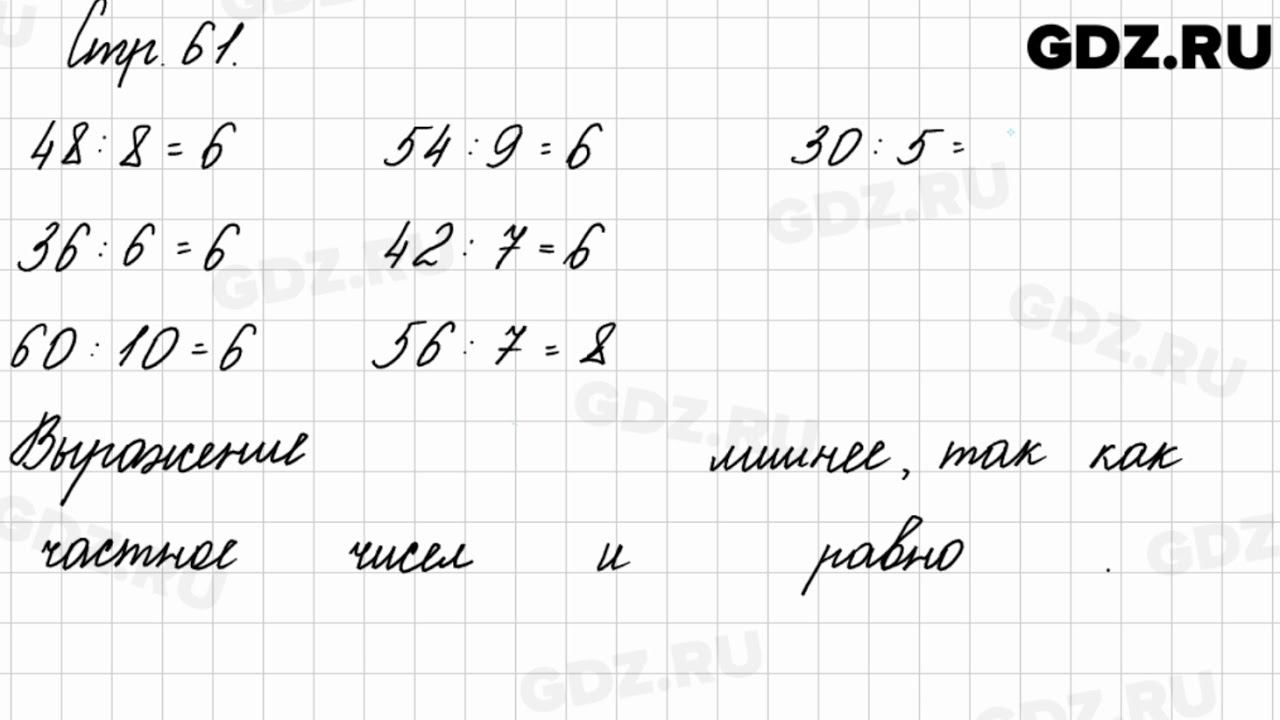 Стр. 61.
GDZ.RU
48 : 8 = 6 54 : 9 = 6 30 : 5 =
GDZ.RU
36 : 6 = 6 42 : 7 = 6
GDZ.RU
GDZ.RU
60 : 10 = 6 56 : 7 = 8
GDZ.RU
Выражение лишнее, так как
GDZ.RU
частное чисел и равно .
GDZ.RU
GDZ.RU
GDZ.RU